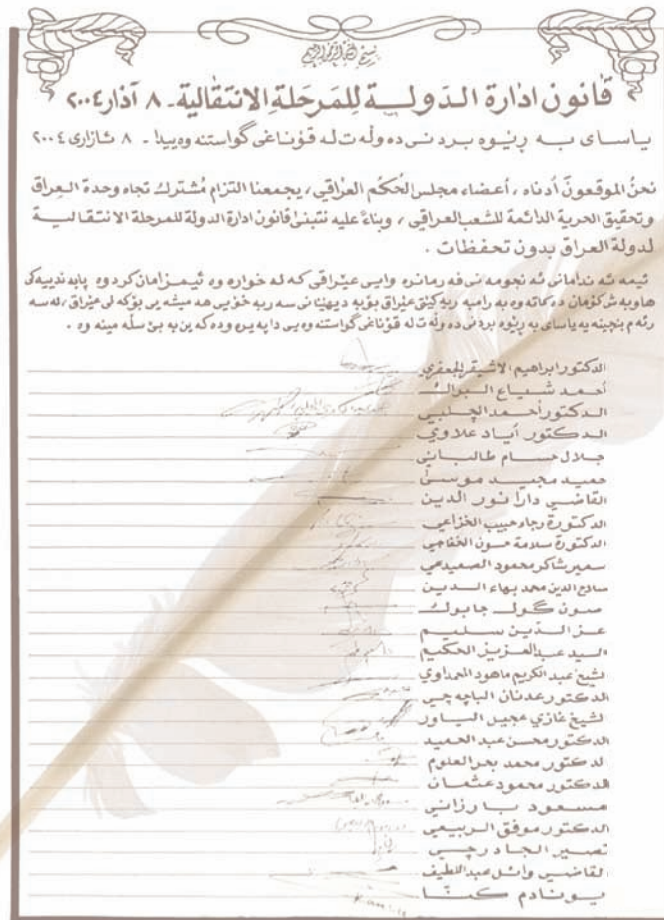 بسم الله الرحمن الرحيم
قانون ادارة الدولة للمرحلة الانتقالية - ٨ آذار ٢٠٠٤
ياساى به ريوه بردنى ده وله ت له قوناغى گواستنه وه ييدا - ٨ ئازارى ٢٠٠٤
نحن الموقعون أدناه ، أعضاء مجلس الحكم العراقي ، يجمعنا التزام مشترك تجاه وحدة العراق
وتحقيق الحرية الدائمة للشعب العراقي ، وبناءً عليه نتبنى قانون ادارة الدولة للمرحلة الانتقالية
لدولة العراق بدون تحفظات .
ئيمه ئه ندامانى ئه نجومه نى فه رمانره وايى عيراقى كه له خواره وه ئيمزامان كردوه پابه ندييه كى
هاوبه ش كۆمان ده كاته وه به رامبه ر يه كيتى عيراق بۆ به ديهينانى سه ربه خۆيى هه ميشه يى بۆ گه لى عيراق ، له سه
رئه م بنچينه يه ياساى به ريوه بردنى ده وله ت له قۆناغى گواستنه وه يى دا په يره وده كه ين به بى سله مينه وه .
الدكتور ابراهيم الاشيقر الجعفري
أحمد شياع البراك
الدكتور أحمد الچلبي
الدكتور أياد علاوي
جلال حسام طالباني
حميد مجيد موسى
القاضي دارا نور الدين
الدكتورة رجاء حبيب الخزاعي
الدكتورة سلامة حسون الخفاجي
سمير شاكر محمود الصميدعي
صلاح الدين محمد بهاء الدين
صون گول چابوك
عز الدين سليم
السيد عبد العزيز الحكيم
الشيخ عبد الكريم ماهود المحمداوي
الدكتور عدنان الباچه چي
الشيخ غازي عجيل الياور
الدكتور محسن عبد الحميد
الدكتور محمد بحر العلوم
الدكتور محمود عثمان
مسعود بارزاني
الدكتور موفق الربيعي
نصير الجادرچي
القاضي وائل عبد اللطيف
يونادم كنّا